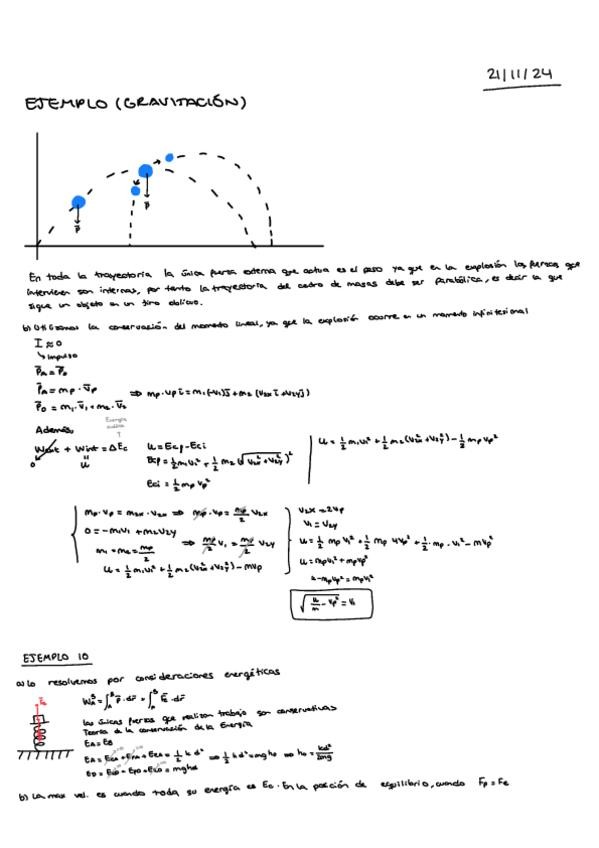 21/11/24
EJEMPLO (GRAVITACIÓN)
P
P
En toda la trayectoria la única fuerza externa que actua es el peso ya que en la explosión las fuerzas que
intervienen son internas, por tanto la trayectoria del centro de masas debe ser parabólica, es decir la que
sigue un objeto en un tiro oblicuo.
b) Utilizamos la conservación del momento lineal, ya que la explosión ocurre en un momento infinitesimal
I ≈ 0
↳ Impulso
P̄A = P̄0
P̄A = mp · v̄p ⇒ mp · vp ī = m1(-v1)j̄ + m2 (v2x ī + v2y j̄)
P̄0 = m1 · v̄1 + m2 · v̄2
Además
Energía
Wext + Wint = ΔEc u = Ecf - Eci u = 1/2 m1v1² + 1/2 m2(v2x² + v2y²) - 1/2 mpvp²
0 u Ecf = 1/2 m1v1² + 1/2 m2 (√(v2x² + v2y²))²
Eci = 1/2 mp vp²
mp · vp = m2x · v2x ⇒ mp · vp = mp/2 v2x v2x = 2vp
0 = -m1v1 + m2v2y v1 = v2y
m1 = m2 = mp/2 ⇒ mp/2 v1 = mp/2 v2y u = 1/2 mp v1² + 1/2 mp 4vp² + 1/2 · mp · v1² - mvp²
u = 1/2 m1v1² + 1/2 m2(v2x² + v2y²) - mvp u = mpv1² + mpvp²
u - mpvp² = mpv1²
√(u/m - vp²) = v1
EJEMPLO 10
a) Lo resolvemos por consideraciones energéticas
Fe
W = ∫ P̄ · dr̄ + ∫ F̄e · dr̄
Las únicas fuerzas que realizan trabajo son conservativas
Teoría de la conservación de la Energía
EA = EB
EA = EcA + EpA + EeA = 1/2 k d² ⇒ 1/2 k d² = mgho ⇒ ho = kd²/2mg
ED = EcD + EpD + EeD = mgho
b) La max vel. es cuando toda su energía es Ec. En la posición de equilibrio, cuando Fp = Fe